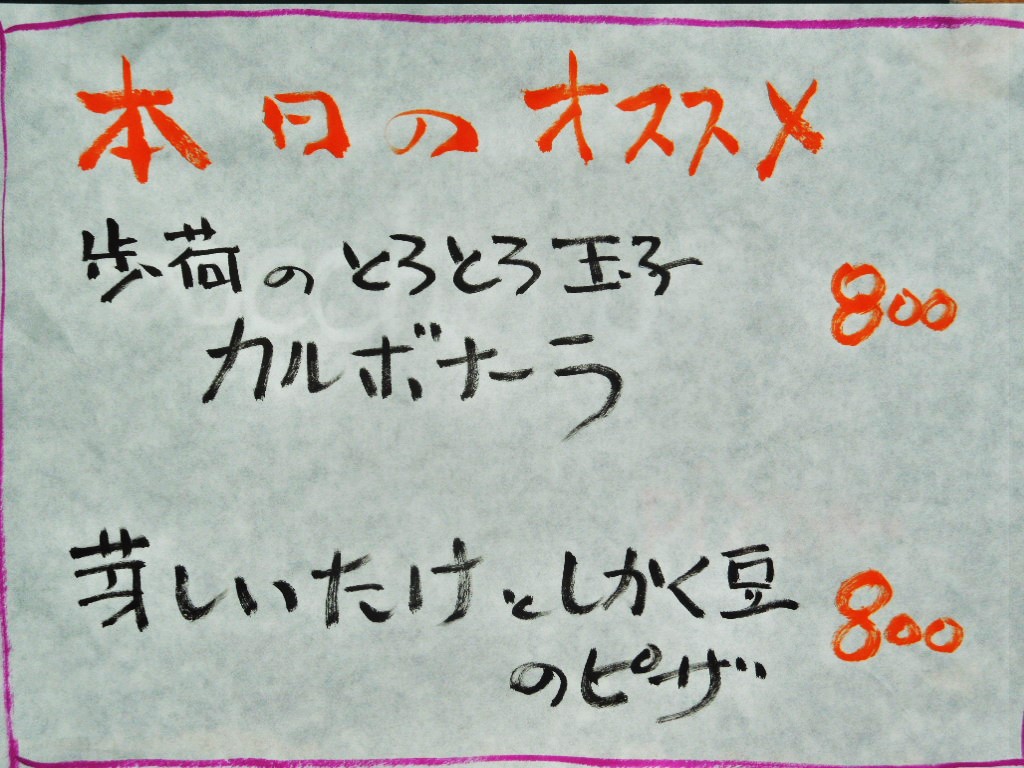 本日のオススメ
歩荷のとろとろ玉子 800
カルボナーラ
芽しいたけとしかく豆 800
のピザ